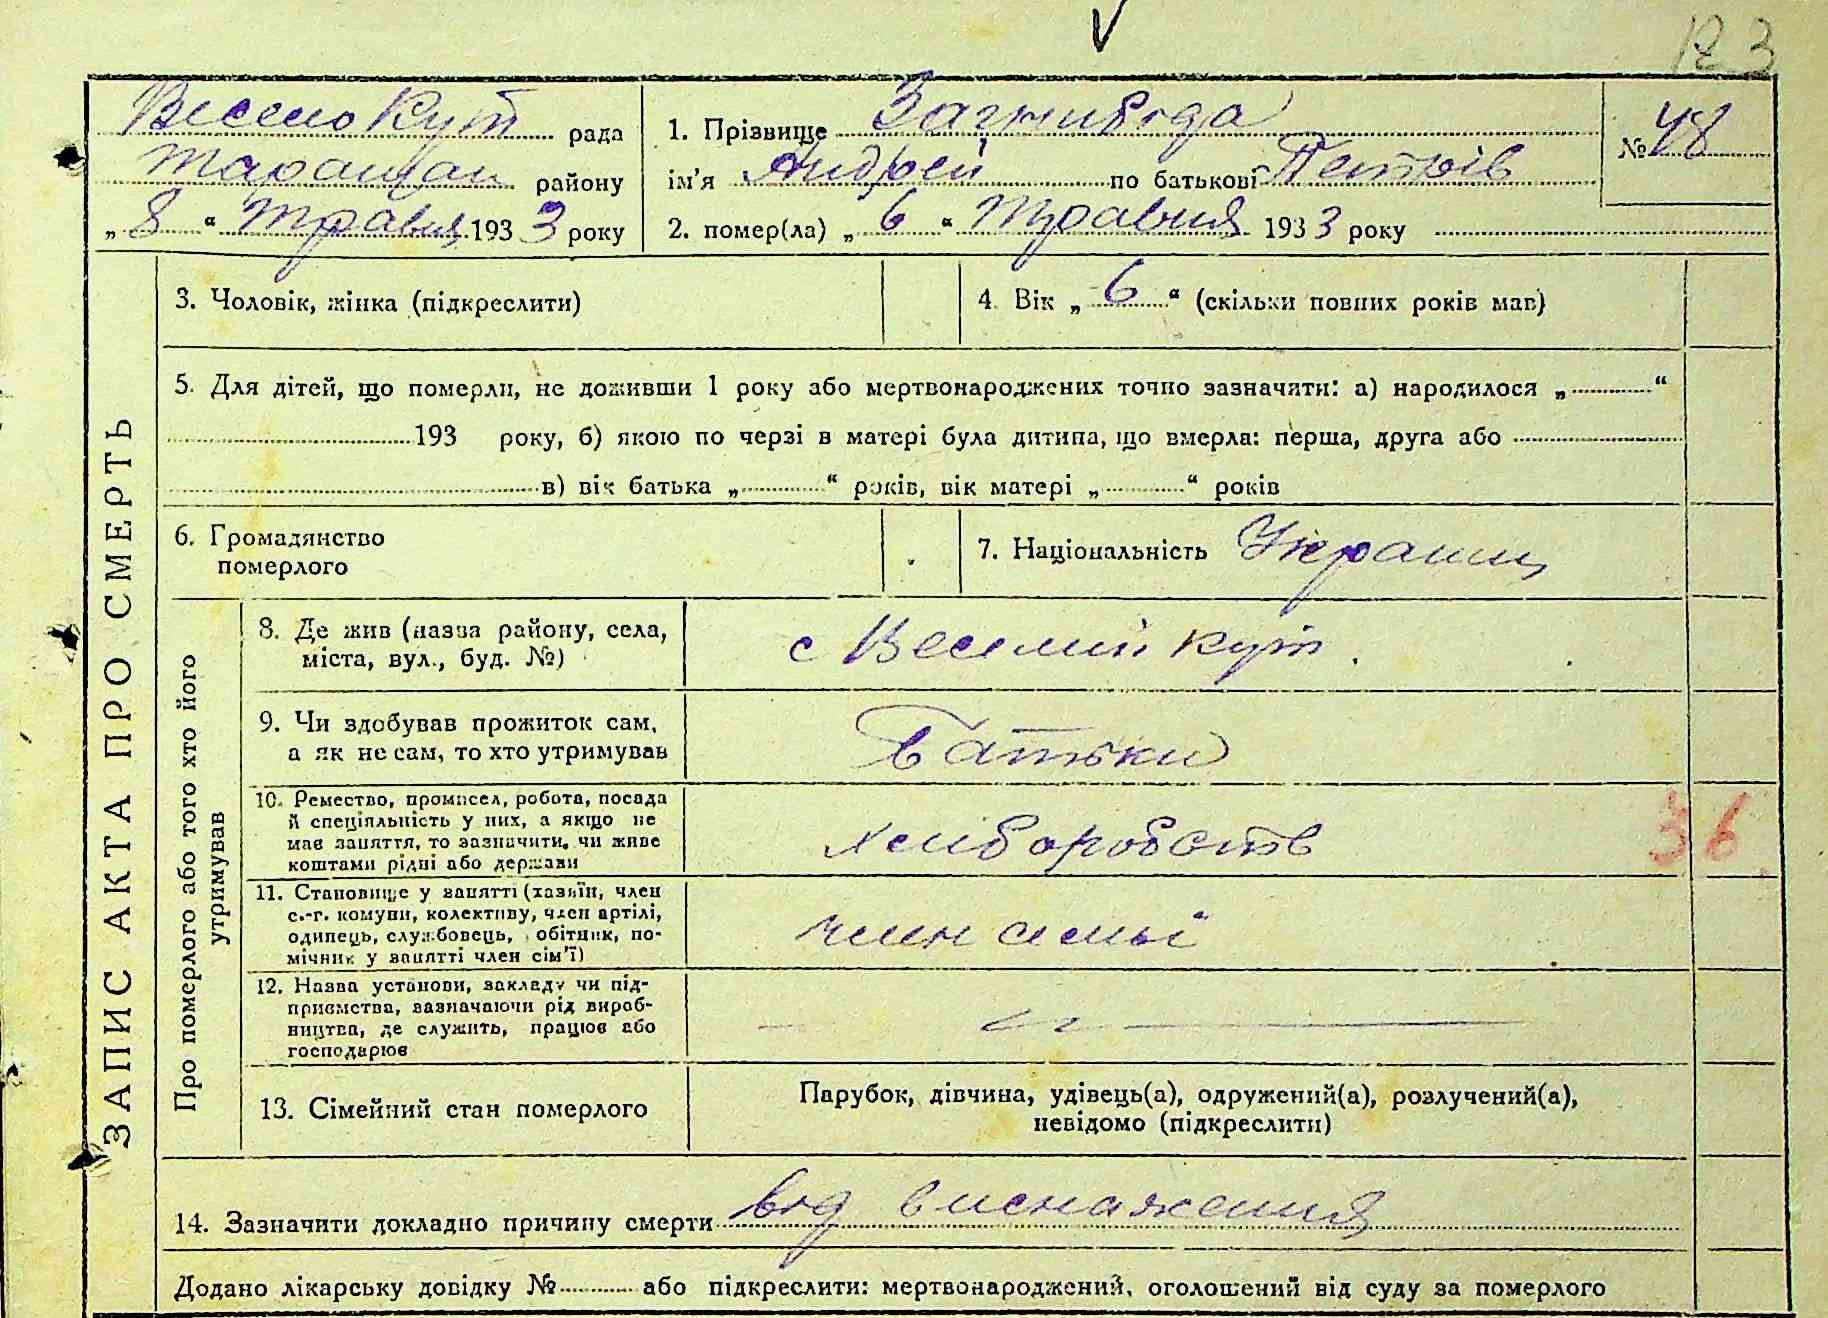 123
Весело Кут рада
Таращан району
„ 8 “ Травня 1933 року
1. Прізвище Загнивода
ім'я Андрей по батькові Петрів
2. помер(ла) „ 6 “ Травня 1933 року
№ 48
ЗАПИС АКТА ПРО СМЕРТЬ
3. Чоловік, жінка (підкреслити)
4. Вік „ 6 “ (скільки повних років мав)
5. Для дітей, що померли, не доживши 1 року або мертвонароджених точно зазначити: а) народилося „ “
193 року, б) якою по черзі в матері була дитина, що вмерла: перша, друга або
в) вік батька „ “ років, вік матері „ “ років
6. Громадянство
померлого
7. Національність Украинц
Про померлого або того хто його
утримував
8. Де жив (назва району, села,
міста, вул., буд. №)
с Веселий кут.
9. Чи здобував прожиток сам,
а як не сам, то хто утримував
Батьки
10. Ремество, промисел, робота, посада
й спеціяльність у них, а якщо не
має заняття, то зазначити, чи живе
коштами рідні або держави
хлиборобств
36
11. Становище у занятті (хазяїн, член
с.-г. комуни, колективу, член артілі,
одинець, службовець, обітник, по-
мічник у занятті член сім'ї)
член семьі
12. Назва установи, закладу чи під-
приємства, зазначаючи рід вироб-
ництва, де служить, працює або
господарює
13. Сімейний стан померлого
Парубок, дівчина, удівець(а), одружений(а), розлучений(а),
невідомо (підкреслити)
14. Зазначити докладно причину смерти від виснаження
Додано лікарську довідку № або підкреслити: мертвонароджений, оголошений від суду за померлого